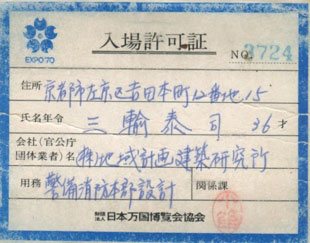 EXPO'70
入場許可証
NO. 3724
住所 京都市左京区吉田本町12番地15
氏名年令 三輪泰司 36才
会社(官公庁
団体業者)名 (株)地域計画建築研究所
用務 警備消防本部設計
関係課
財団法人 日本万国博覧会協会